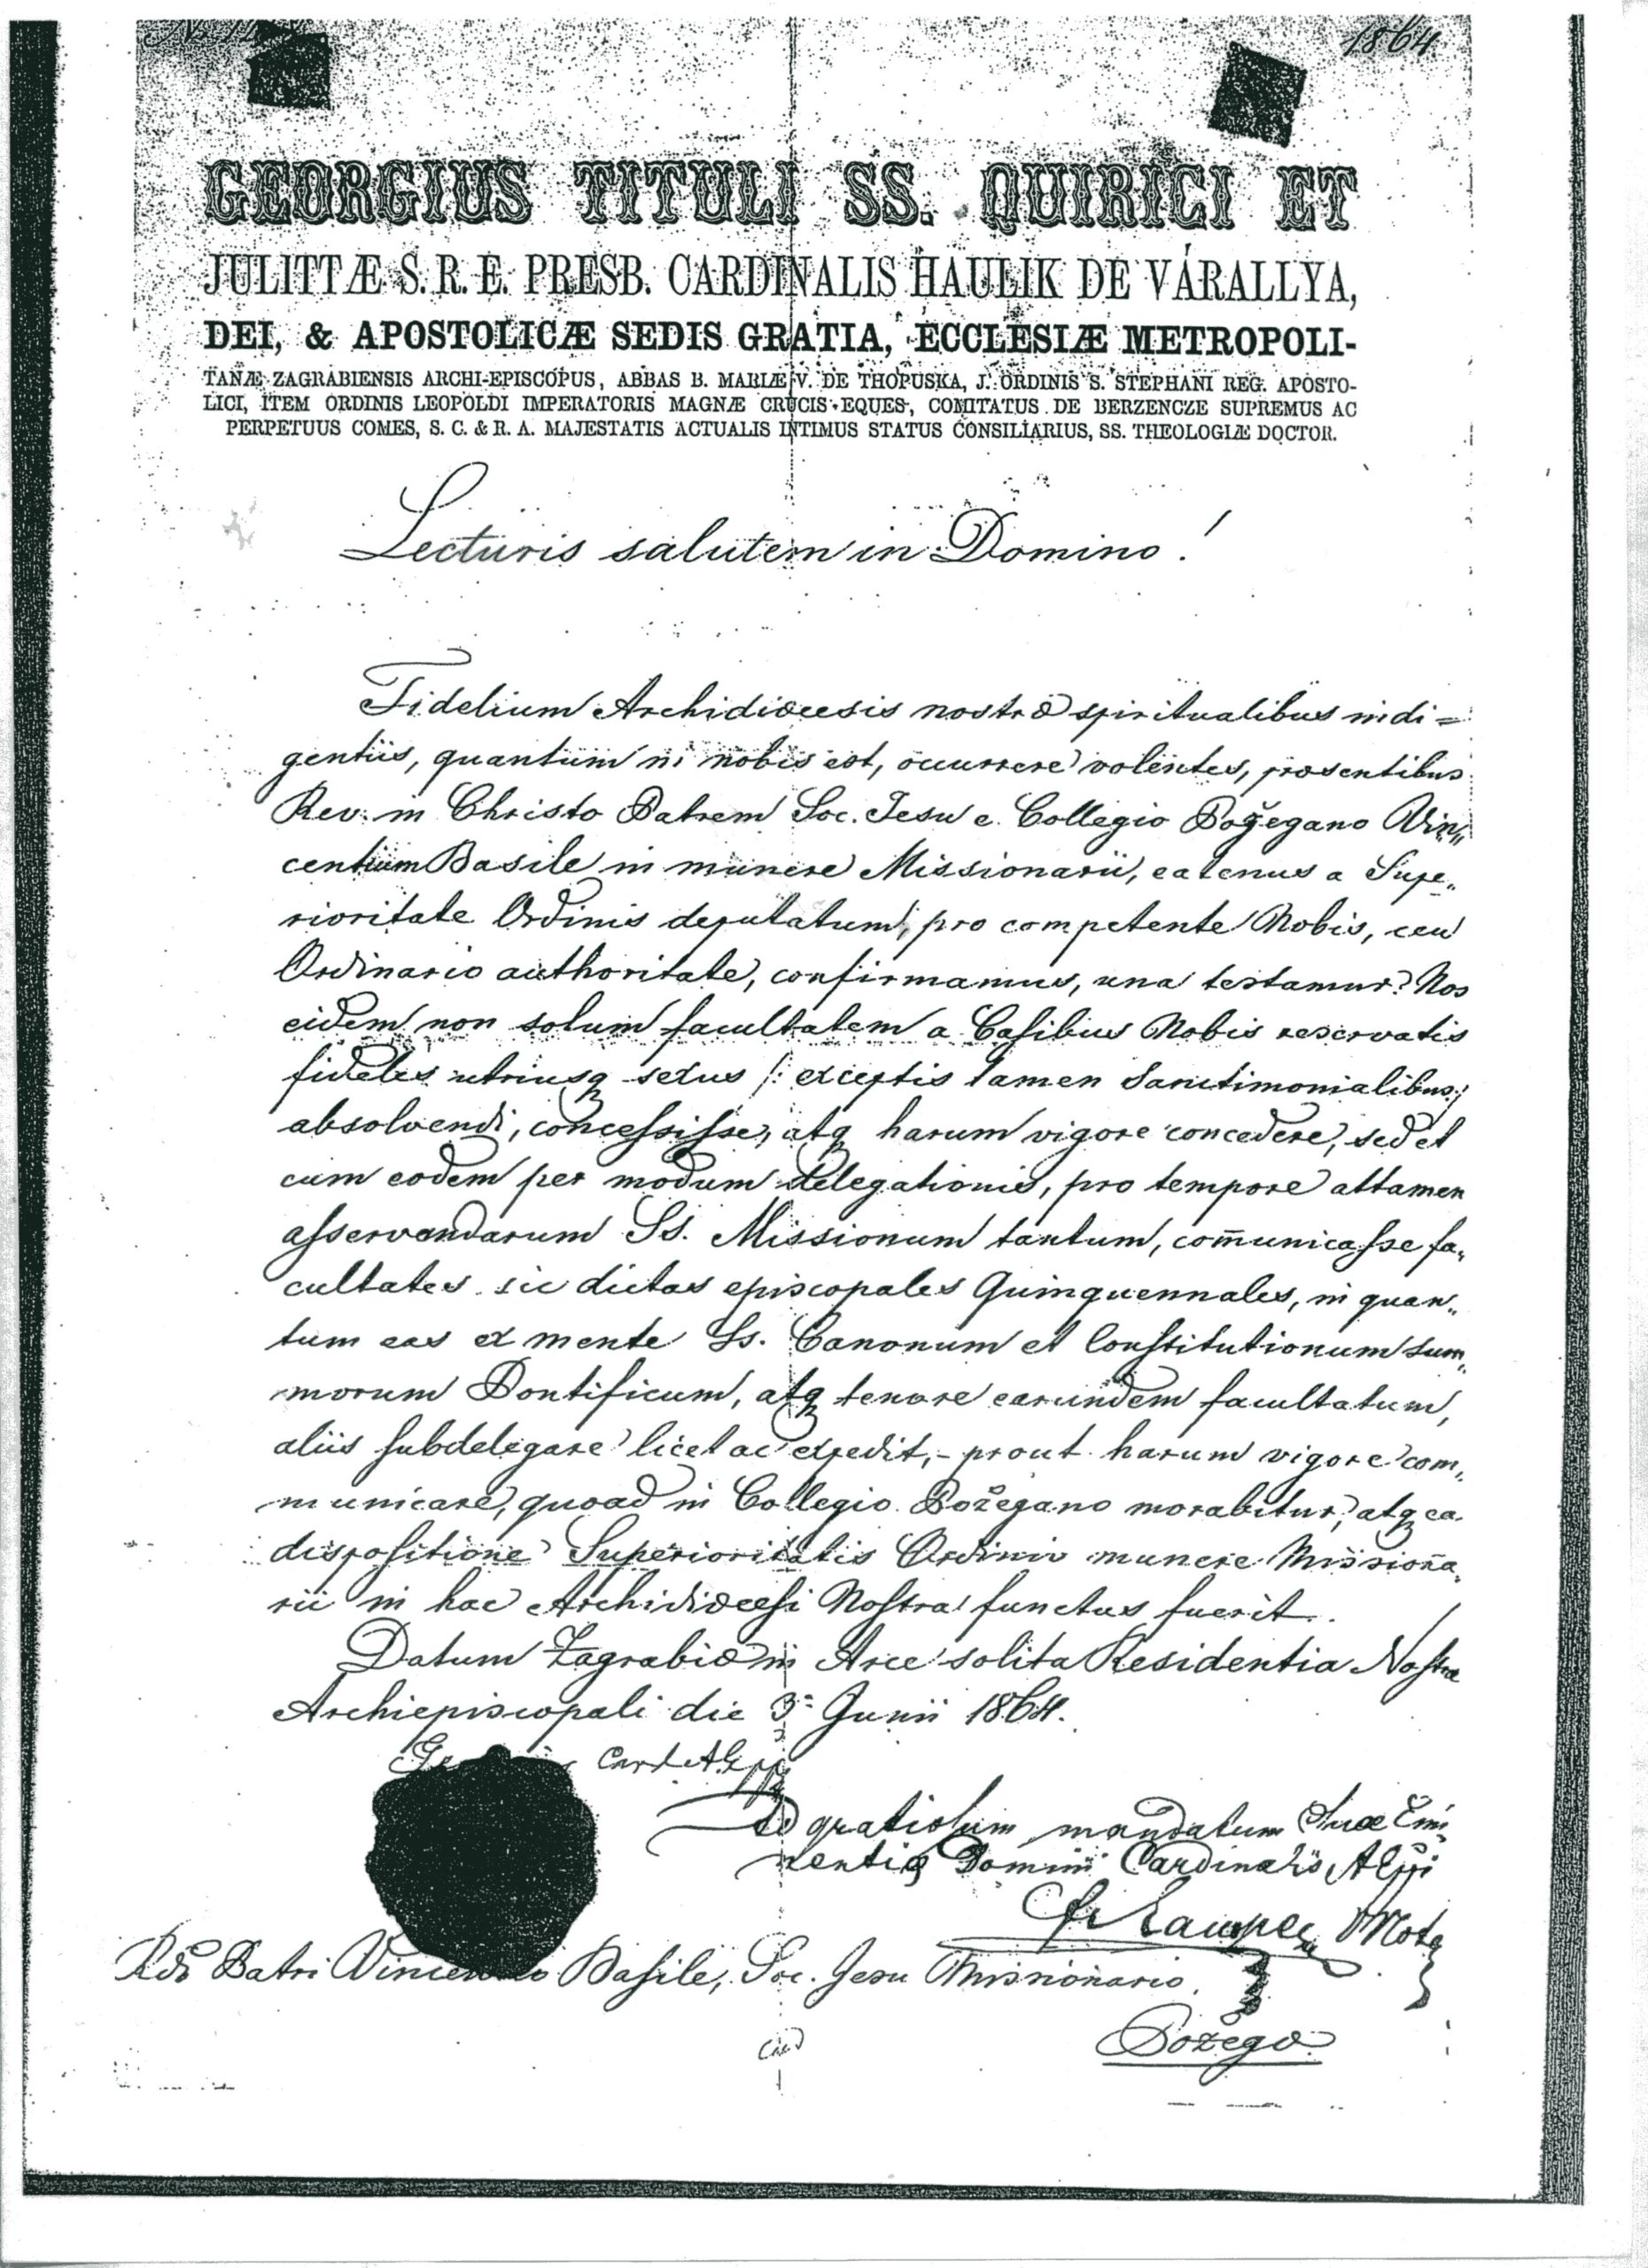 1864
GEORGIUS TITULI SS. QUIRICI ET
JULITTÆ S. R. E. PRESB. CARDINALIS HAULIK DE VÁRALLYA,
DEI, & APOSTOLICÆ SEDIS GRATIA, ECCLESIÆ METROPOLI-
TANÆ ZAGRABIENSIS ARCHI-EPISCOPUS, ABBAS B. MARIÆ V. DE THOPUSKA, J. ORDINIS S. STEPHANI REG. APOSTO-
LICI, ITEM ORDINIS LEOPOLDI IMPERATORIS MAGNÆ CRUCIS EQUES, COMITATUS DE BERZENCZE SUPREMUS AC
PERPETUUS COMES, S. C. & R. A. MAJESTATIS ACTUALIS INTIMUS STATUS CONSILIARIUS, SS. THEOLOGIÆ DOCTOR.
Lecturis salutem in Domino!
Fidelium Archidiœcesis nostræ spiritualibus indi=
gentiis, quantum in nobis est, occurrere volentes, præsentibus
Rev. in Christo Patrem Soc. Jesu e Collegio Požegano Vin„
centium Basile in munere Missionarii, eatenus a Supe„
rioritate Ordinis deputatum, pro competente Nobis, ceu
Ordinario authoritate, confirmamus, una testamur: Nos
eidem non solum facultatem a Casibus Nobis reservatis
fideles utriusq sexus /: exceptis tamen Sanctimonialibus:/
absolvendi, concessisse, atq harum vigore concedere, sed et
cum eodem per modum delegationis, pro tempore attamen
asservandarum Ss. Missionum tantum, com̄unicasse fa„
cultates sic dictas episcopales Quinquennales, in quan„
tum eas ex mente Ss. Canonum et Constitutionum Sum„
morum Pontificum, atq tenore earundem facultatum,
aliis subdelegare licet ac expedit, - prout harum vigore com„
municare, quoad in Collegio Požegano morabitur, atq ea
dispositione Superioritatis Ordinis munere Missiona„
rii in hac Archidiœcesi Nostra functus fuerit.
Datum Zagrabiæ in Arce solita Residentia Nostra
Archiepiscopali die 3ª Junii 1864.
Card. AEpp
Ad gratiosum mandatum Suæ Emi
nentiæ Domini Cardinalis AEppi
Rdo Patri Vincentio Basile, Soc. Jesu Missionario.
Požegæ